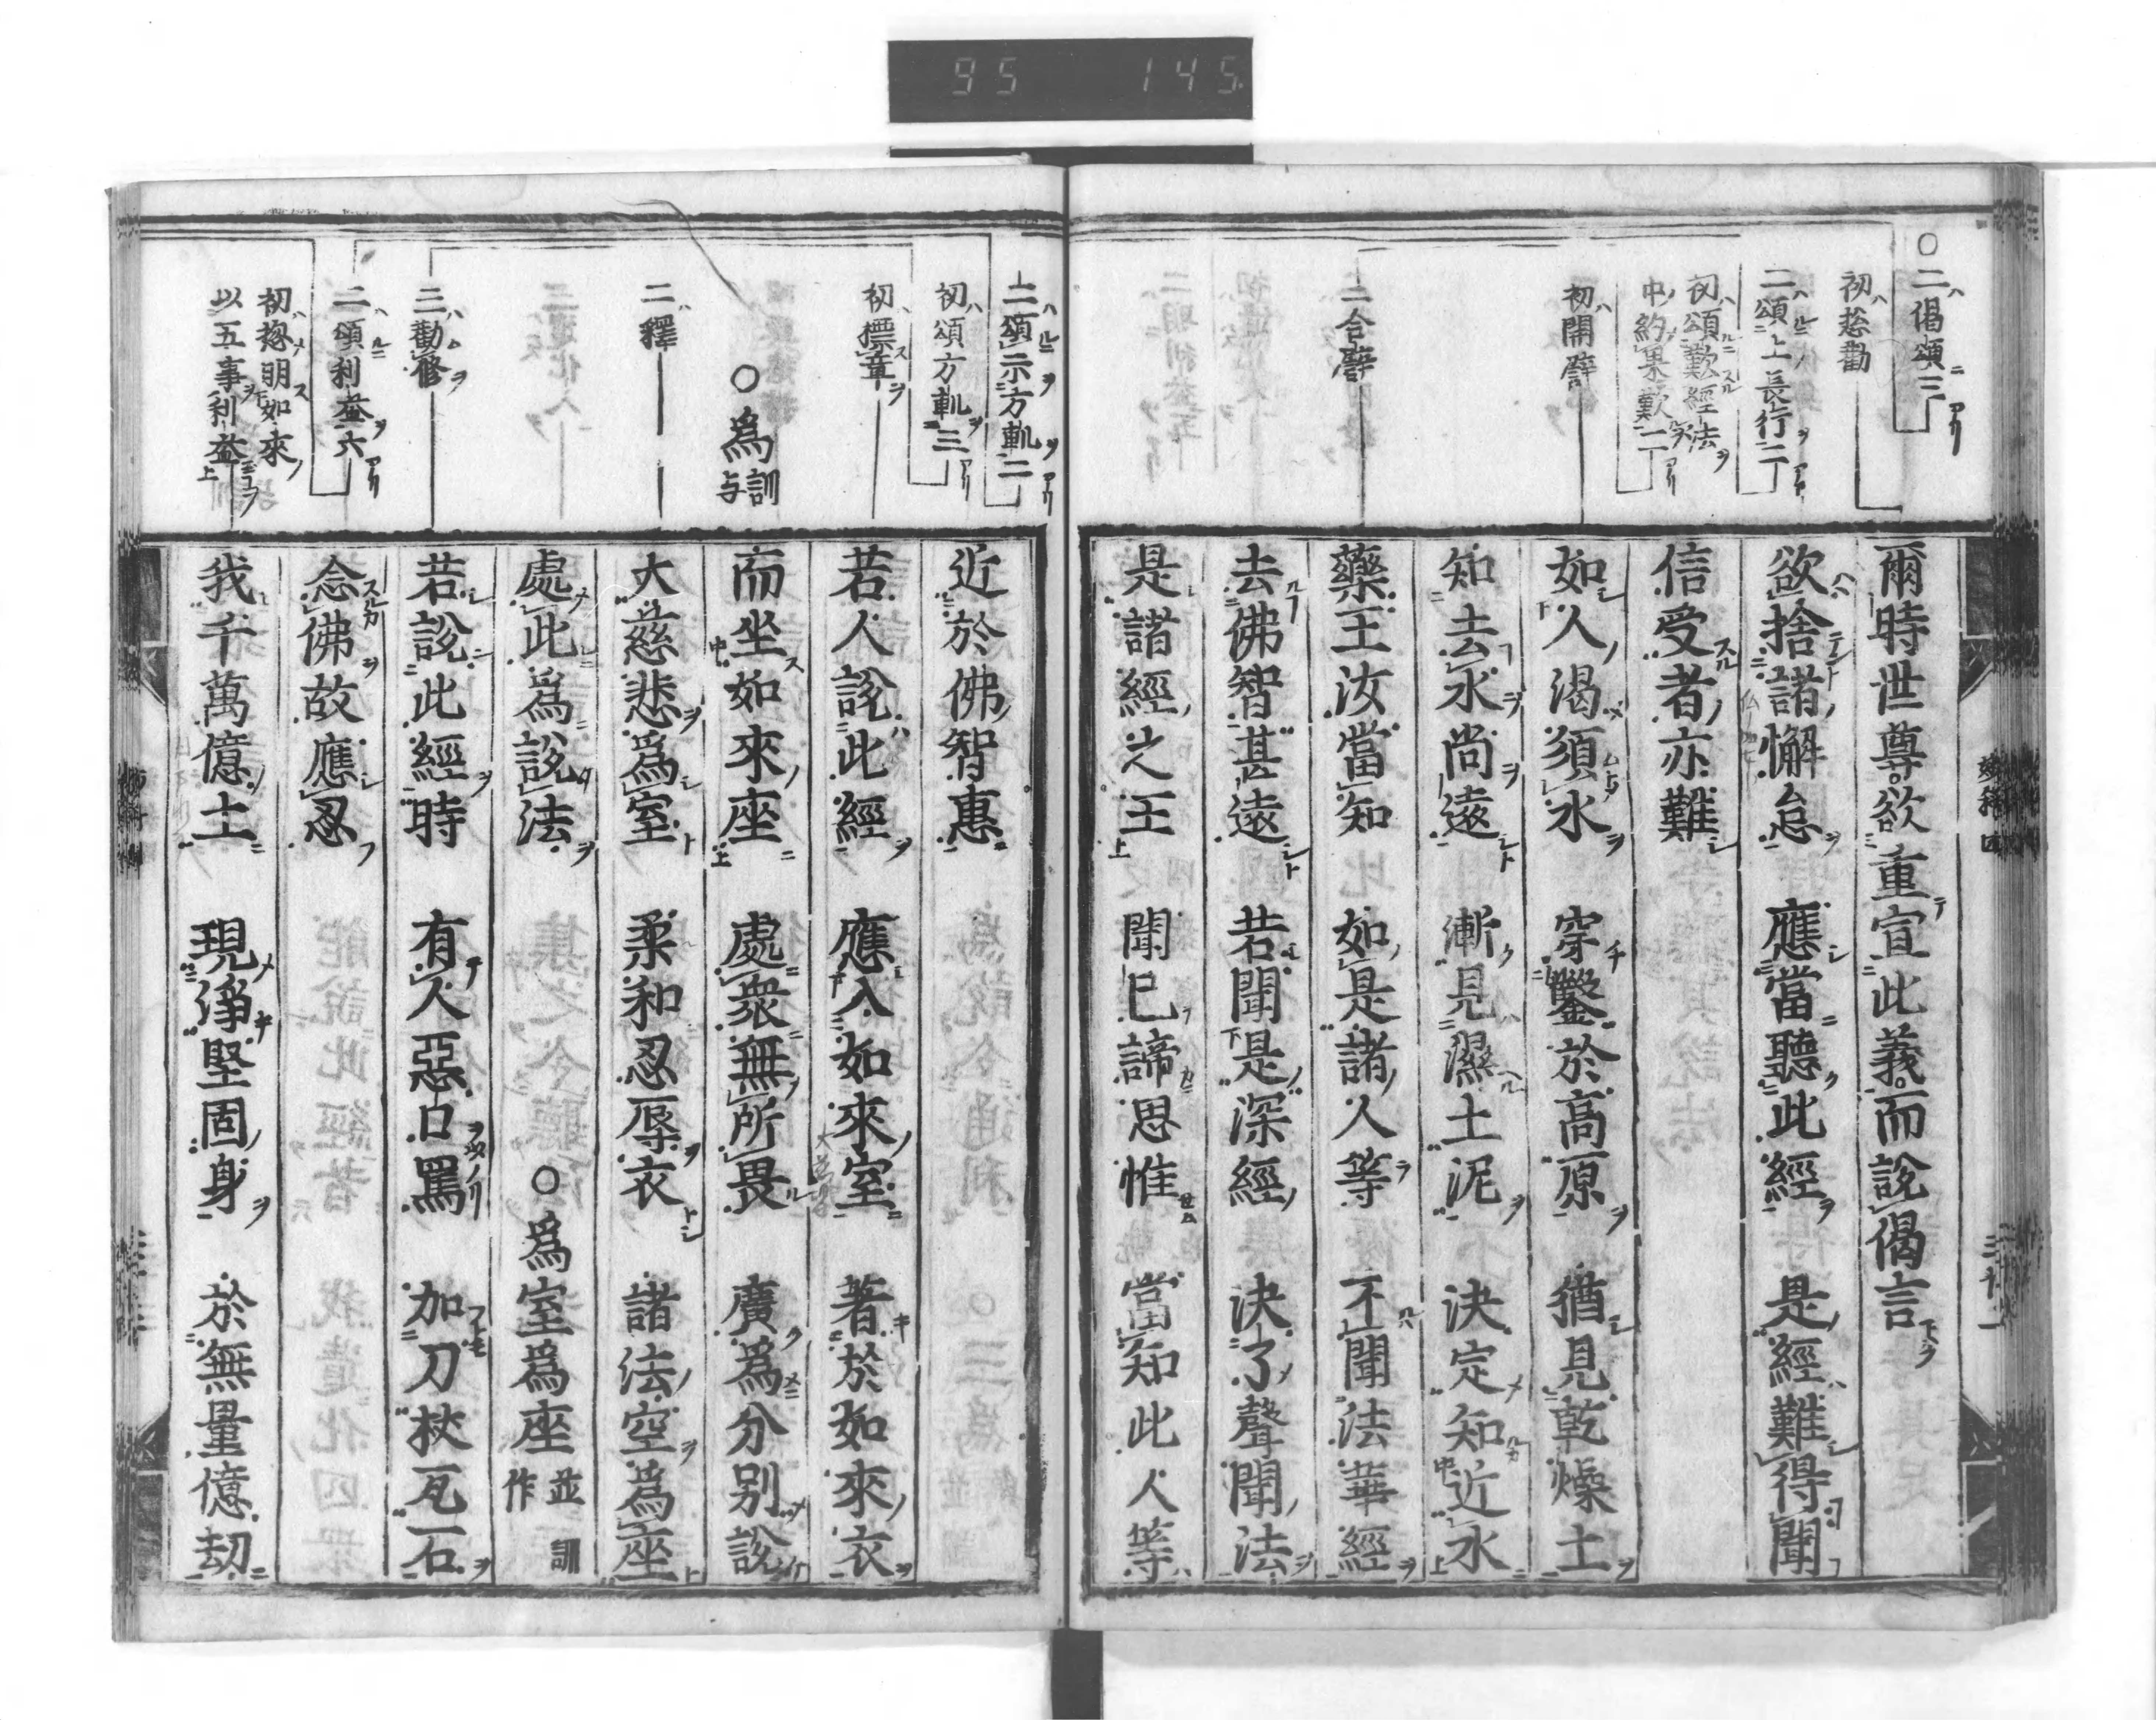 95 145
○二偈頌三
初惣勸
二頌上長行二
初頌歎經法
中約果歎二
初開譬
二合譬
爾時世尊欲重宣此義而說偈言
欲捨諸懈怠 應當聽此經 是經難得聞
信受者亦難
如人渴須水 穿鑿於高原 猶見乾燥土
知去水尚遠 漸見濕土泥 決定知近水
藥王汝當知 如是諸人等 不聞法華經
去佛智甚遠 若聞是深經 決了聲聞法
是諸經之王 聞已諦思惟 當知此人等
二頌示方軌二
初頌方軌三
初標章
○為訓与
二釋
三勸修
二頌利益六
初惣明如來
以五事利益
近於佛智惠
若人說此經 應入如來室 著於如來衣
而坐如來座 處衆無所畏 廣為分別說
大慈悲為室 柔和忍辱衣 諸法空為座
處此為說法 ○為室為座並訓作
若說此經時 有人惡口罵 加刀杖瓦石
念佛故應忍
我千萬億土 現淨堅固身 於無量億劫